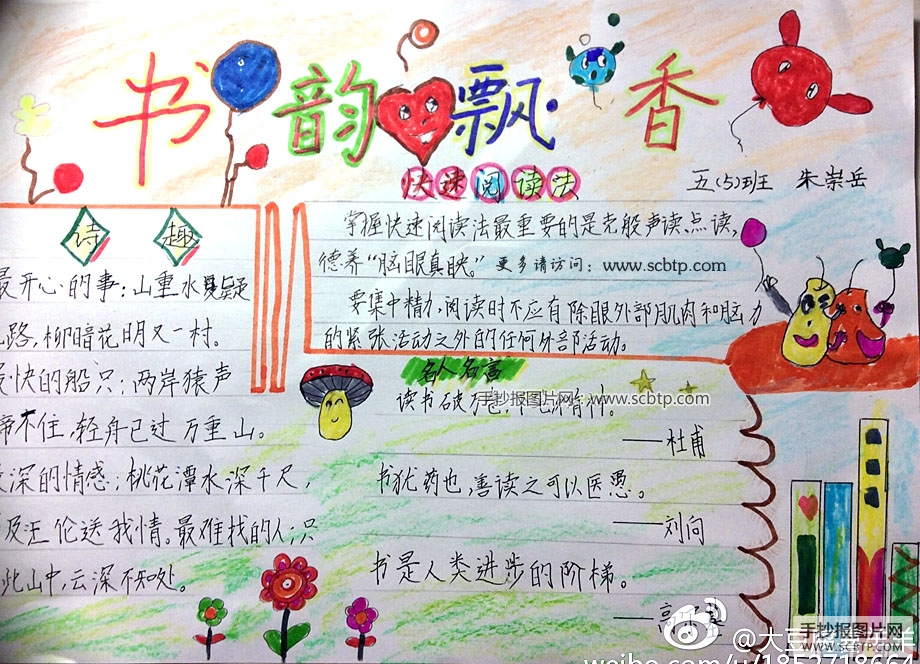 书韵飘香
快速阅读法
五(5)班 朱崇岳
诗趣
最开心的事:山重水复疑
路,柳暗花明又一村。
快的船只:两岸猿声
不住,轻舟已过万重山。
深的情感:桃花潭水深千尺,
及汪伦送我情。最难找的人:只
此山中,云深不知处。
掌握快速阅读法最重要的是克服声读、点读,
德养“脑眼真映。”更多请访问:www.scbtp.com
要集中精力,阅读时不应有除眼外部肌肉和脑力
的紧张活动之外的任何外部活动。
名人名言
读书破万
手抄报图片网--www.scbtp.com
——杜甫
书犹药也,善读之可以医愚。
——刘向
书是人类进步的阶梯。
——高
手抄报图片网
WWW.SCBTP.COM
@大豆
weibo.com/u/185